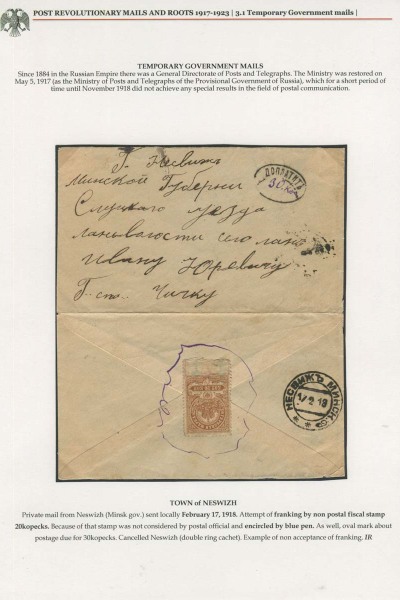 POST REVOLUTIONARY MAILS AND ROOTS 1917-1923 | 3.1 Temporary Government mails |
TEMPORARY GOVERNMENT MAILS
Since 1884 in the Russian Empire there was a General Directorate of Posts and Telegraphs. The Ministry was restored on
May 5, 1917 (as the Ministry of Posts and Telegraphs of the Provisional Government of Russia), which for a short period of
time until November 1918 did not achieve any special results in the field of postal communication.
Г. Несвижъ
ДОПЛАТИТЬ
30 к.
Минской Губернии
Слуцкаго уезда
Ивану Юревичу
Г-ну. Чичку
НЕСВИЖЪ МИНСК.
2 18
TOWN of NESWIZH
Private mail from Neswizh (Minsk gov.) sent locally February 17, 1918. Attempt of franking by non postal fiscal stamp
20kopecks. Because of that stamp was not considered by postal official and encircled by blue pen. As well, oval mark about
postage due for 30kopecks. Cancelled Neswizh (double ring cachet). Example of non acceptance of franking. IR